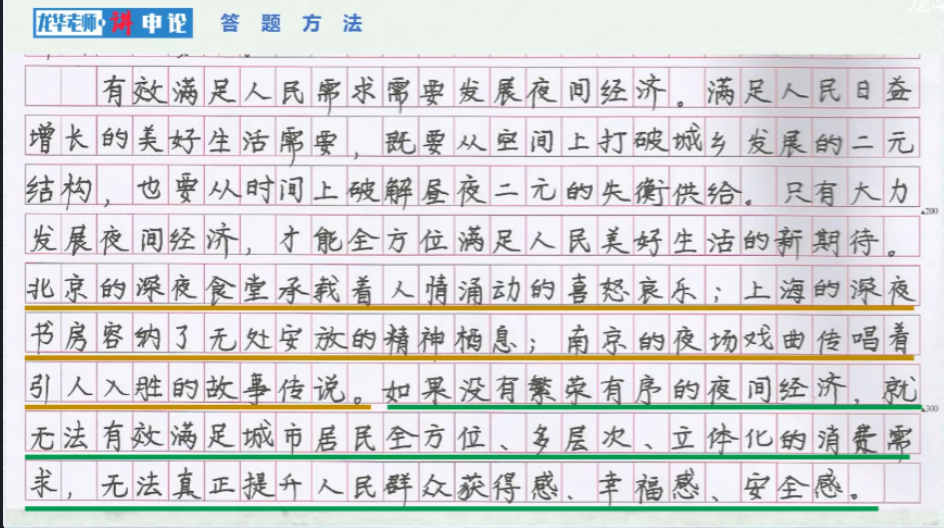 龙华老师·讲申论 答题方法
有效满足人民需求需要发展夜间经济。满足人民日益
增长的美好生活需要,既要从空间上打破城乡发展的二元
结构,也要从时间上破解昼夜二元的失衡供给。只有大力
200
发展夜间经济,才能全方位满足人民美好生活的新期待。
北京的深夜食堂承载着人情涌动的喜怒哀乐;上海的深夜
书房容纳了无处安放的精神栖息;南京的夜场戏曲传唱着
引人入胜的故事传说。如果没有繁荣有序的夜间经济,就
300
无法有效满足城市居民全方位、多层次、立体化的消费需
求,无法真正提升人民群众获得感、幸福感、安全感。